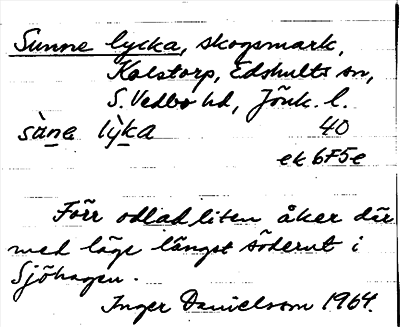 Sunne lycka, skogsmark,
Kolstorp, Edshults sn,
S. Vedbo hd, Jönk. l.
sàne lỳka 40
ek 6F5e
Förr odlad liten åker där
med läge längst söderut i
Sjöhagen.
Inger Danielsson 1964.